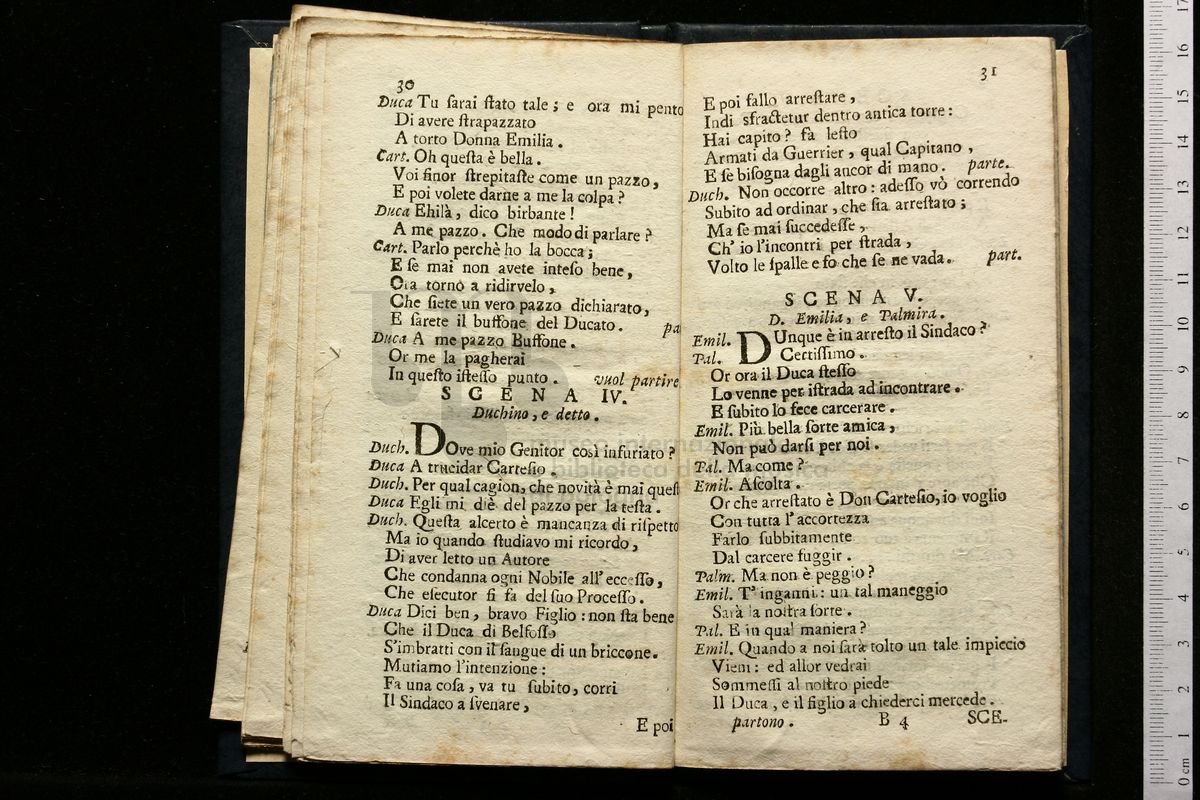 30
Duca Tu sarai stato tale; e ora mi pento
Di avere strapazzato
A torto Donna Emilia.
Cart. Oh questa è bella.
Voi finor strepitaste come un pazzo,
E poi volete darne a me la colpa?
Duca Ehilà, dico birbante!
A me pazzo. Che modo di parlare?
Cart. Parlo perchè ho la bocca;
E se mai non avete inteso bene,
Ora torno a ridirvelo,
Che siete un vero pazzo dichiarato,
E sarete il buffone del Ducato. pa
Duca A me pazzo Buffone.
Or me la pagherai
In questo istesso punto. vuol partire
SCENA IV.
Duchino, e detto.
Duch. DOve mio Genitor così infuriato?
Duca A trucidar Cartesio.
Duch. Per qual cagion, che novità è mai quest
Duca Egli mi diè del pazzo per la testa.
Duch. Questa alcerto è mancanza di rispetto
Ma io quando studiavo mi ricordo,
Di aver letto un Autore
Che condanna ogni Nobile all' eccesso,
Che esecutor si fa del suo Processo.
Duca Dici ben, bravo Figlio: non sta bene
Che il Duca di Belfosso
S'imbratti con il sangue di un briccone.
Mutiamo l'intenzione:
Fa una cosa, va tu subito, corri
Il Sindaco a svenare,
E poi
31
E poi fallo arrestare,
Indi sfractetur dentro antica torre:
Hai capito? fa lesto
Armati da Guerrier, qual Capitano,
E se bisogna dagli ancor di mano. parte.
Duch. Non occorre altro: adesso vò correndo
Subito ad ordinar, che sia arrestato;
Ma se mai succedesse,
Ch' io l'incontri per strada,
Volto le spalle e fo che se ne vada. part.
SCENA V.
D. Emilia, e Palmira.
Emil. DUnque è in arresto il Sindaco?
Pal. Certissimo.
Or ora il Duca stesso
Lo venne per istrada ad incontrare.
E subito lo fece carcerare.
Emil. Più bella sorte amica,
Non può darsi per noi.
Pal. Ma come?
Emil. Ascolta.
Or che arrestato è Don Cartesio, io voglio
Con tutta l'accortezza
Farlo subbitamente
Dal carcere fuggir.
Palm. Ma non è peggio?
Emil. T' inganni: un tal maneggio
Sarà la nostra sorte.
Pal. E in qual maniera?
Emil. Quando a noi sarà tolto un tale impiccio
Vieni: ed allor vedrai
Sommessi al nostro piede
Il Duca, e il figlio a chiederci mercede.
partono. B 4 SCE-
museo internazionale
biblioteca della musica
17
16
15
14
13
12
11
10
9
8
7
6
5
4
3
2
1
0 cm